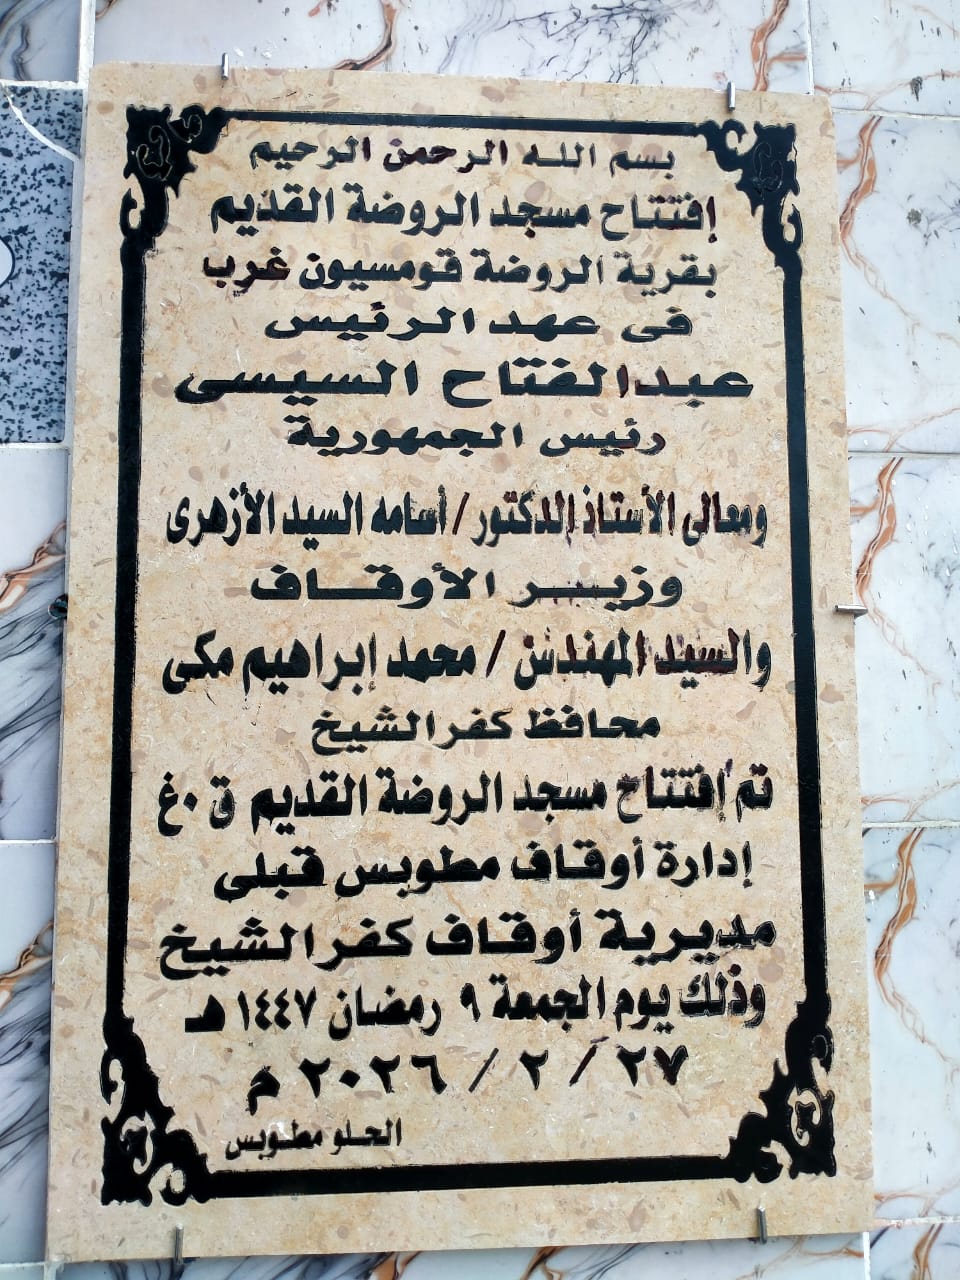 بسم الله الرحمن الرحيم
إفتتاح مسجد الروضة القديم
بقرية الروضة قومسيون غرب
فى عهد الرئيس
عبدالفتاح السيسى
رئيس الجمهورية
ومعالى الأستاذ الدكتور / أسامه السيد الأزهرى
وزيـر الأوقـاف
والسيد المهندس / محمد إبراهيم مكى
محافظ كفرالشيخ
تم إفتتاح مسجد الروضة القديم ق٠غ
إدارة أوقاف مطوبس قبلى
مديرية أوقاف كفرالشيخ
وذلك يوم الجمعة ٩ رمضان ١٤٤٧ هـ
٢٧ / ٢ / ٢٠٢٦ م
الحلو مطوبس